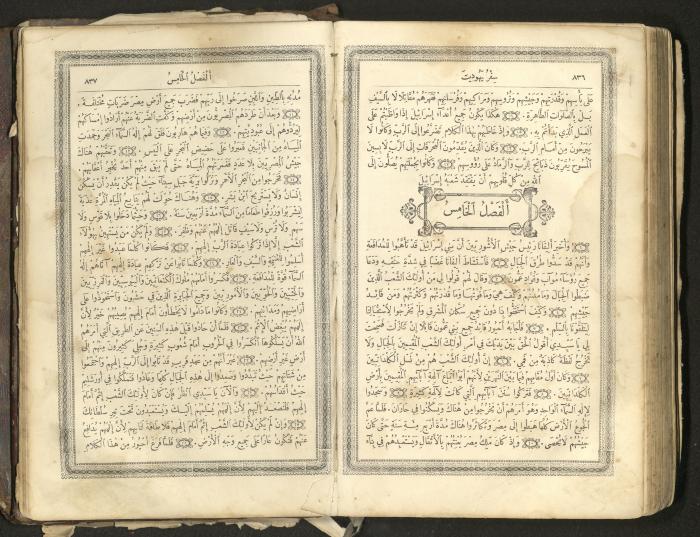 ٨٣٦ سِفْرُ يَهُودِيتَ
عَلَى بَأْسِهِمْ وَقُدْرَتِهِمْ وَجَيْشِهِمْ وَتُرُوسِهِمْ وَمَرَاكِبِهِمْ وَفُرْسَانِهِمْ فَقَهَرَهُمْ مُقَاتِلًا لَا بِالسَّيْفِ
بَلْ بِالصَّلَوَاتِ الطَّاهِرَةِ. هٰكَذَا يَكُونُ جَمِيعُ أَعْدَاءِ إِسْرَائِيلَ إِذَا وَاظَبْتُمْ عَلَى
الْعَمَلِ الَّذِي بَدَأْتُمْ بِهِ. وَإِذْ خَاطَبَهُمْ بِهٰذَا الْكَلَامِ تَضَرَّعُوا إِلَى الرَّبِّ وَكَانُوا لَا
يَبْرَحُونَ مِنْ أَمَامِ الرَّبِّ. وَكَانَ الَّذِينَ يُقَدِّمُونَ الْمُحْرَقَاتِ إِلَى الرَّبِّ لَابِسِينَ
الْمُسُوحَ يُقَرِّبُونَ ذَبَائِحَ لِلرَّبِّ وَالرَّمَادُ عَلَى رُؤُوسِهِمْ. وَكَانُوا بِجُمْلَتِهِمْ يُصَلُّونَ إِلَى
اللهِ مِنْ كُلِّ قُلُوبِهِمْ أَنْ يَفْتَقِدَ شَعْبَهُ إِسْرَائِيلَ
أَلْفَصْلُ الْخَامِسُ
وَأُخْبِرَ أَلِيفَانَا رَئِيسُ جَيْشِ الْأَشُّورِيِّينَ أَنَّ بَنِي إِسْرَائِيلَ قَدْ تَأَهَّبُوا لِلْمُدَافَعَةِ
وَأَنَّهُمْ قَدْ سَدُّوا طُرُقَ الْجِبَالِ. فَاسْتَشَاطَ أَلِيفَانَا غَضَبًا فِي شِدَّةِ حَنَقِهِ وَدَعَا
جَمِيعَ رُؤَسَاءِ مُوآبَ وَقُوَّادِ عَمُّونَ. وَقَالَ لَهُمْ قُولُوا لِي مَنْ أُولٰئِكَ الشَّعْبُ الَّذِينَ
ضَبَطُوا الْجِبَالَ وَمَا مُدُنُهُمْ وَكَيْفَ هِيَ وَمَا قُوَّتُهَا وَمَا قُدْرَتُهُمْ وَكَثْرَتُهُمْ وَمَنْ قَائِدُ
جَيْشِهِمْ. وَكَيْفَ اسْتَخَفُّوا بِنَا دُونَ جَمِيعِ سُكَّانِ الْمَشْرِقِ وَلَمْ يَخْرُجُوا لِاسْتِقْبَالِنَا
لِيَتَلَقَّوْنَا بِالسِّلْمِ. فَأَجَابَهُ أَحْيُورُ قَائِدُ جَمِيعِ بَنِي عَمُّونَ قَائِلًا إِنْ تَنَازَلْتَ فَسَمِعْتَ
لِي يَا سَيِّدِي أَقُولُ الْحَقَّ بَيْنَ يَدَيْكَ فِي أَمْرِ أُولٰئِكَ الشَّعْبِ الْمُقِيمِينَ بِالْجِبَالِ وَلَا
تَخْرُجُ لَفْظَةٌ كَاذِبَةٌ مِنْ فَمِي. إِنَّ أُولٰئِكَ الشَّعْبَ هُمْ مِنْ نَسْلِ الْكَلْدَانِيِّينَ
وَكَانَ أَوَّلُ مُقَامِهِمْ فِيمَا بَيْنَ النَّهْرَيْنِ لِأَنَّهُمْ أَبَوُا اتِّبَاعَ آلِهَةِ آبَائِهِمِ الْمُقِيمِينَ بِأَرْضِ
الْكَلْدَانِيِّينَ. فَتَرَكُوا سُنَنَ آبَائِهِمِ الَّتِي كَانَتْ لِآلِهَةٍ كَثِيرَةٍ. وَسَجَدُوا
لِإِلٰهِ السَّمَاءِ الْوَاحِدِ وَهُوَ أَمَرَهُمْ أَنْ يَخْرُجُوا مِنْ هُنَاكَ وَيَسْكُنُوا فِي حَارَانَ. فَلَمَّا عَمَّ
الْجُوعُ الْأَرْضَ كُلَّهَا هَبَطُوا إِلَى مِصْرَ وَتَكَاثَرُوا هُنَاكَ مُدَّةَ أَرْبَعِ مِئَةِ سَنَةٍ حَتَّى كَانَ
جَيْشُهُمْ لَا يُحْصَى. وَإِذْ كَانَ مَلِكُ مِصْرَ يُعَنِّتُهُمْ بِالْأَثْقَالِ وَيَسْتَعْبِدُهُمْ فِي بِنَاءِ
أَلْفَصْلُ الْخَامِسُ ٨٣٧
مُدُنِهِ بِالطِّينِ وَاللَّبِنِ صَرَخُوا إِلَى رَبِّهِمْ فَضَرَبَ جَمِيعَ أَرْضِ مِصْرَ ضَرَبَاتٍ مُخْتَلِفَةً.
وَبَعْدَ أَنْ طَرَدَهُمُ الْمِصْرِيُّونَ مِنْ أَرْضِهِمْ وَكَفَّتِ الضَّرْبَةُ عَنْهُمْ أَرَادُوا إِمْسَاكَهُمْ
لِيَرُدُّوهُمْ إِلَى عُبُودِيَّتِهِمْ. وَفِيمَا هُمْ هَارِبُونَ فَلَقَ لَهُمْ إِلٰهُ السَّمَاءِ الْبَحْرَ وَجَمَدَتِ
الْمِيَاهُ مِنَ الْجَانِبَيْنِ فَعَبَرُوا عَلَى حَضِيضِ الْبَحْرِ عَلَى الْيَبَسِ. وَتَعَقَّبَهُمْ هُنَاكَ
جَيْشُ الْمِصْرِيِّينَ بِلَا عَدَدٍ فَغَمَرَتْهُمُ الْمِيَاهُ حَتَّى لَمْ يَبْقَ مِنْهُمْ أَحَدٌ يُخْبِرُ أَعْقَابَهُمْ.
فَخَرَجُوا مِنَ الْبَحْرِ الْأَحْمَرِ وَنَزَلُوا بَرِّيَّةَ جَبَلِ سِينَاءَ حَيْثُ لَمْ يَكُنْ يَقْدِرُ أَنْ يَسْكُنَ
إِنْسَانٌ وَلَا يَسْتَرِيحُ ابْنُ بَشَرٍ. وَهُنَاكَ حُوِّلَتْ لَهُمْ يَنَابِيعُ الْمِيَاهِ الْمُرَّةِ عَذْبَةً
لِيَشْرَبُوا وَرُزِقُوا طَعَامًا مِنَ السَّمَاءِ مُدَّةَ أَرْبَعِينَ سَنَةً. وَحَيْثُمَا دَخَلُوا بِلَا قَوْسٍ وَلَا
سَهْمٍ وَلَا تُرْسٍ وَلَا سَيْفٍ قَاتَلَ إِلٰهُهُمْ عَنْهُمْ وَظَفِرَ. وَلَمْ يَكُنْ مَنْ يَسْتَهِينُ بِهٰؤُلَاءِ
الشَّعْبِ إِلَّا إِذَا تَرَكُوا عِبَادَةَ الرَّبِّ إِلٰهِهِمْ. فَكَانُوا كُلَّمَا عَبَدُوا غَيْرَ إِلٰهِهِمْ
أُسْلِمُوا لِلْغَنِيمَةِ وَالسَّيْفِ وَالْعَارِ. وَكُلَّمَا تَابُوا عَنْ تَرْكِهِمْ عِبَادَةَ إِلٰهِهِمْ آتَاهُمْ إِلٰهُ
السَّمَاءِ قُوَّةً لِلْمُدَافَعَةِ. فَكَسَرُوا أَمَامَهُمْ مُلُوكَ الْكَنْعَانِيِّينَ وَالْيَبُوسِيِّينَ وَالْفَرِزِّيِّينَ
وَالْحِثِّيِّينَ وَالْحُوِّيِّينَ وَالْأَمُورِيِّينَ وَجَمِيعَ الْجَبَابِرَةِ الَّذِينَ فِي حَشْبُونَ وَاسْتَحْوَذُوا عَلَى
أَرَاضِيهِمْ وَمَدَائِنِهِمْ. وَكَانُوا مَا دَامُوا لَا يَخْطَأُونَ أَمَامَ إِلٰهِهِمْ يُصِيبُهُمْ خَيْرٌ لِأَنَّ
إِلٰهَهُمْ يُبْغِضُ الْإِثْمَ. فَلَمَّا أَنْ حَادُوا قَبْلَ هٰذِهِ السِّنِينَ عَنِ الطَّرِيقِ الَّتِي أَمَرَهُمُ
اللهُ أَنْ يَسْلُكُوهَا انْكَسَرُوا فِي الْحُرُوبِ أَمَامَ شُعُوبٍ كَثِيرَةٍ وَجُلِيَ كَثِيرُونَ مِنْهُمْ إِلَى
أَرْضٍ غَيْرِ أَرْضِهِمْ. غَيْرَ أَنَّهُمْ مِنْ عَهْدٍ قَرِيبٍ قَدْ تَابُوا إِلَى الرَّبِّ إِلٰهِهِمْ وَاجْتَمَعُوا
مِنْ شَتَاتِهِمْ حَيْثُ تَبَدَّدُوا وَصَعِدُوا إِلَى هٰذِهِ الْجِبَالِ كُلِّهَا وَعَادُوا فَتَمَلَّكُوا فِي أُورَشَلِيمَ
حَيْثُ أَقْدَاسُهُمْ. وَالْآنَ يَا سَيِّدِي انْظُرْ فَإِنْ كَانَ لِأُولٰئِكَ الشَّعْبِ إِثْمٌ أَمَامَ
إِلٰهِهِمْ فَلْنَصْعَدْ إِلَيْهِمْ لِأَنَّ إِلٰهَهُمْ يُسْلِمُهُمْ إِلَيْكَ وَيُسْتَعْبَدُونَ تَحْتَ نِيرِ سُلْطَانِكَ
وَإِنْ لَمْ يَكُنْ لِأُولٰئِكَ الشَّعْبِ إِثْمٌ أَمَامَ إِلٰهِهِمْ فَلَا طَاقَةَ لَنَا بِهِمْ لِأَنَّ إِلٰهَهُمْ يُدَافِعُ
عَنْهُمْ فَنَكُونُ عَارًا عَلَى جَمِيعِ وَجْهِ الْأَرْضِ. فَلَمَّا فَرَغَ أَحْيُورُ مِنْ هٰذَا الْكَلَامِ